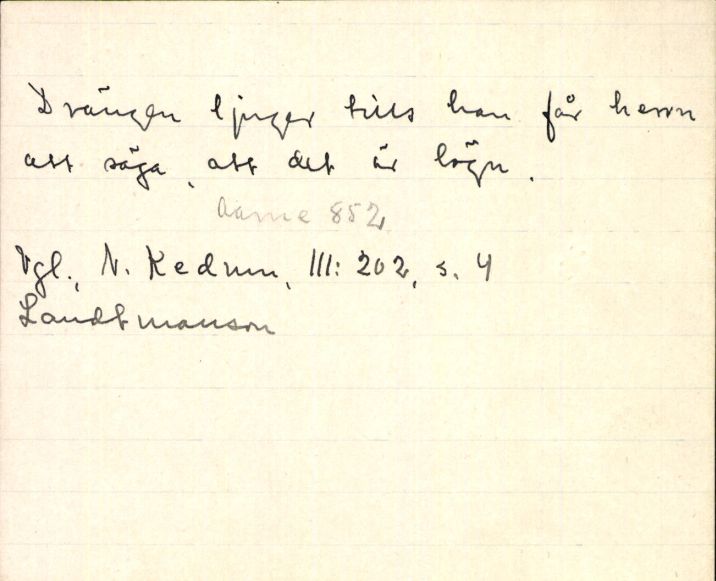 Drängen ljuger tills han får herrn
att säga, att det är lögn.
Aarne 852
Vgl., N. Kedrum, III: 202, s. 4
Landtmanson